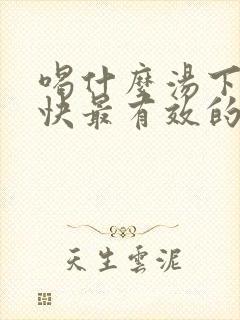 喝什麼湯下
快最有效的
天生雲泥